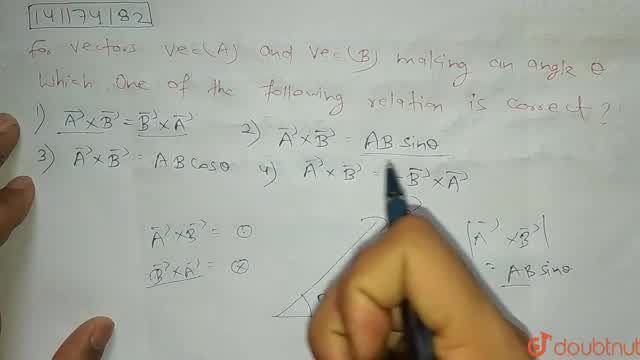 141174182
For vectors vec(A) and vec(B) making an angle θ
which one of the following relation is correct?
1) A⃗ × B⃗ = B⃗ × A⃗
2) A⃗ × B⃗ = AB sinθ
3) A⃗ × B⃗ = AB cosθ
4) A⃗ × B⃗ = -B⃗ × A⃗
A⃗ × B⃗ = ⊙
B⃗ × A⃗ = ⊗
|A⃗ × B⃗|
= AB sinθ
doubtnut